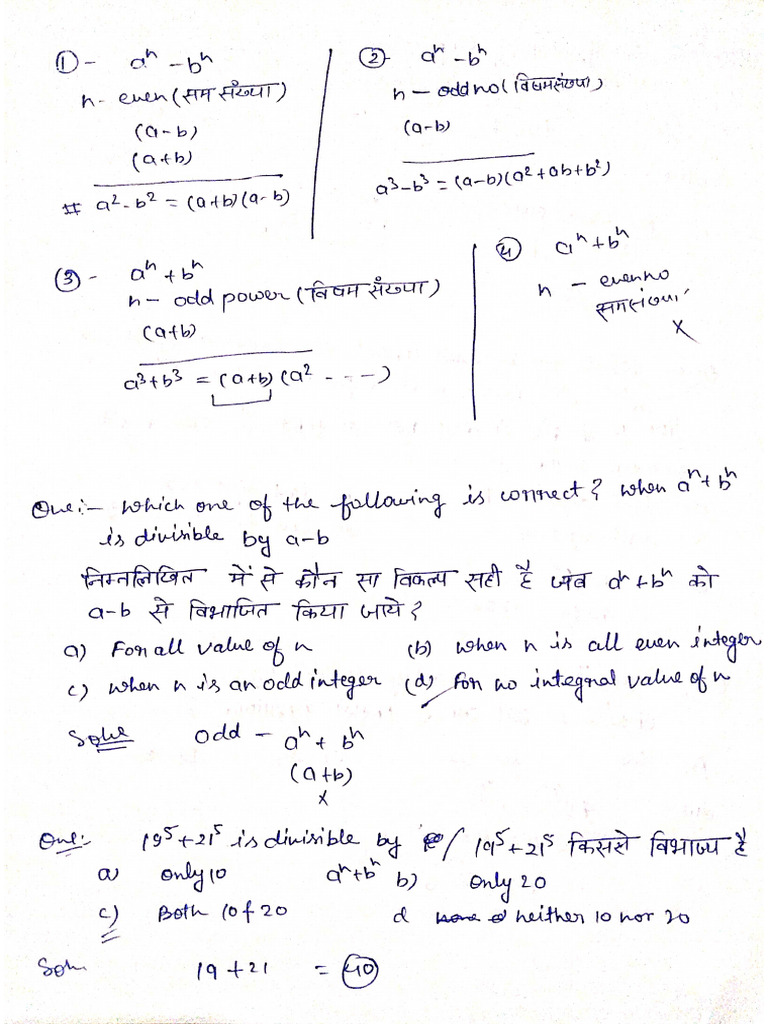 ① - aⁿ - bⁿ
n - even (सम संख्या)
(a-b)
(a+b)
# a² - b² = (a+b)(a-b)
② - aⁿ - bⁿ
n - odd no (विषम संख्या)
(a-b)
a³-b³ = (a-b)(a²+ab+b²)
③ - aⁿ + bⁿ
n - odd power (विषम संख्या)
(a+b)
a³+b³ = (a+b)(a² - - -)
④ aⁿ + bⁿ
n - even no
सम संख्या
X
Que:- which one of the following is correct? when aⁿ + bⁿ
is divisible by a-b
निम्नलिखित में से कौन सा विकल्प सही है जब aⁿ+bⁿ को
a-b से विभाजित किया जाये?
a) For all value of n (b) when n is all even integer
c) when n is an odd integer (d) For no integral value of n
Solve odd - aⁿ + bⁿ
(a+b)
x
Que:- 19⁵+21⁵ is divisible by / 19⁵+21⁵ किससे विभाज्य है
a) only 10 aⁿ+bⁿ b) only 20
c) Both 10 & 20 d neither 10 nor 20
Soln. 19 + 21 = 40